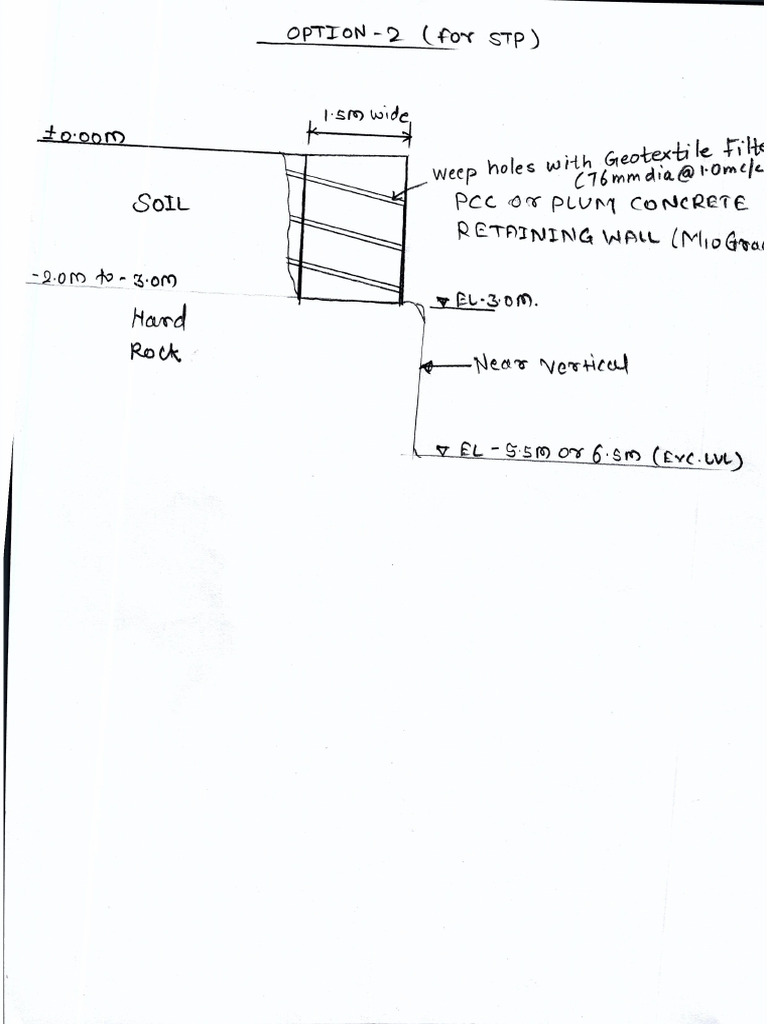 OPTION-2 (for STP)
1.5m wide
±0.00m
weep holes with Geotextile Filte
(76mm dia @ 1.0m c/c
SOIL
PCC or PLUM CONCRETE
RETAINING WALL (M10 Grad
-2.0m to -3.0m
EL-3.0m.
Hard
Rock
Near vertical
EL - 5.5m or 6.5m (Exc. LVL)